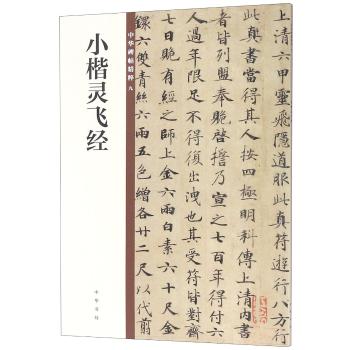 小楷灵飞经
中华碑帖精粹
中华书局
上清六甲靈飛隱道服此真符遊行八方行
此真書當得其人按四極明科上清內書
者皆列盟奉貺啓誓乃宣之七百年得付六
人過年限足不得復出泄也其受符皆對齋
七日貺有經之師上金六兩白素六十尺金
鐶六雙青絲六兩五色繒各廿二尺以代翦